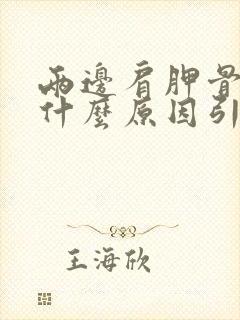 兩邊肩胛骨
什麼原因引
王海欣